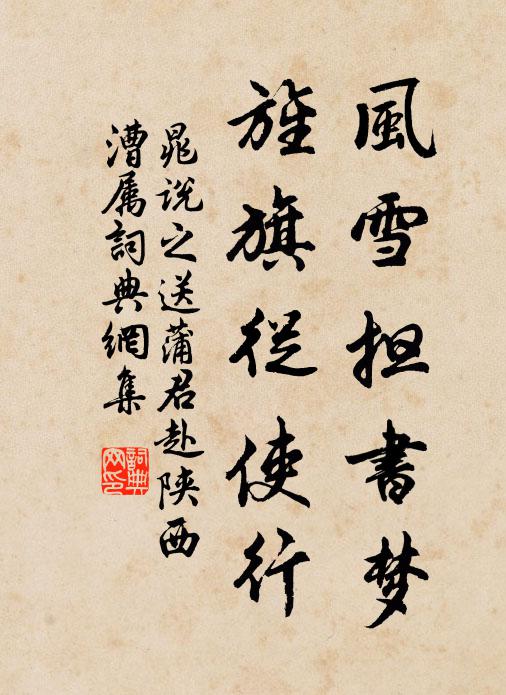 風雪担書梦
旌旗從使行
晁說之送蒲君赴陕西
漕属詞典網集
詞典网印